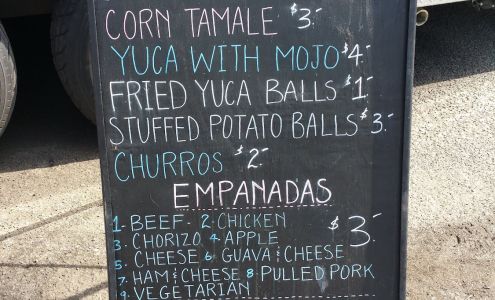 CORN TAMALE $3.-
YUCA WITH MOJO $4.-
FRIED YUCA BALLS $1.-
STUFFED POTATO BALLS $3.-
CHURROS $2.-
EMPANADAS
1. BEEF - 2. CHICKEN $3.-
3. CHORIZO 4. APPLE
5. CHEESE 6 GUAVA & CHEESE
7. HAM & CHEESE 8 PULLED PORK
9. VEGETARIAN